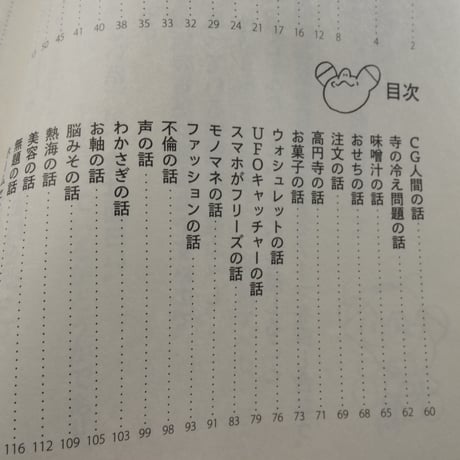 2
4
8
12
16
17
21
24
29
33
38
40
41
45
50
目次
CG人間の話 60
寺の冷え問題の話 62
味噌汁の話 65
おせちの話 68
注文の話 69
高円寺の話 71
お菓子の話 73
ウォシュレットの話 76
UFOキャッチャーの話 79
スマホがフリーズの話 83
モノマネの話 91
ファッションの話 93
不倫の話 98
声の話 99
わかさぎの話 103
お軸の話 105
脳みその話 109
熱海の話 112
美容の話 116
無題の話